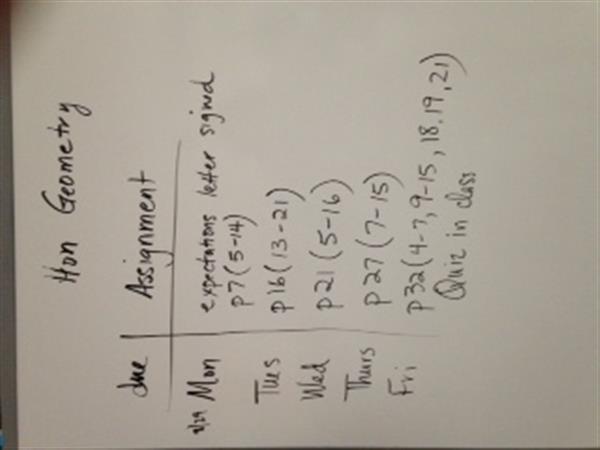 Hon Geometry
due Assignment
8/29 Mon expectations letter signed
p7(5-14)
Tues p16(13-21)
Wed p21(5-16)
Thurs p27(7-15)
Fri p32(4-7, 9-15, 18, 19, 21)
Quiz in class